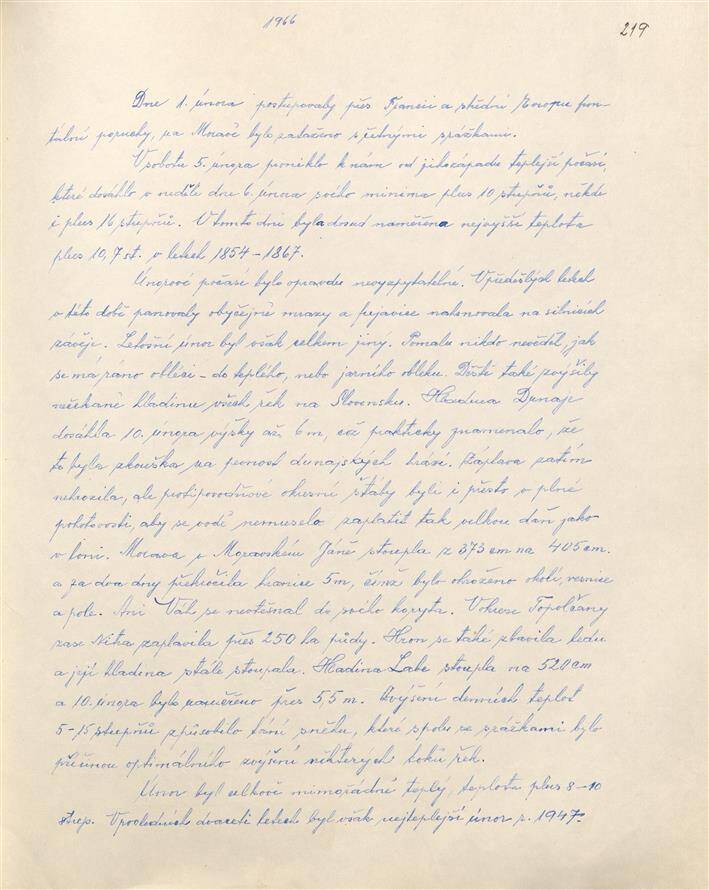 1966
219
Dne 1. února postupovaly přes Francii a střední Evropu fron-
tální poruchy, na Moravě bylo zataženo s četnými srážkami.
V sobotu 5. února proniklo k nám od jihozápadu teplejší počasí,
které dosáhlo v neděli dne 6. února svého minima plus 10 stupňů, někde
i plus 16 stupňů. V tomto dni byla dosud naměřena nejvyšší teplota
plus 10,7 st. v letech 1854-1867.
Únorové počasí bylo opravdu nevyzpytatelné. V předešlých letech
v této době panovaly obyčejně mrazy a fujavice nahrnovala na silnicích
závěje. Letošní únor byl však celkem jiný. Pomalu nikdo nevěděl, jak
se má ráno obléci - do teplého, nebo jarního obleku. Deště také zvýšily
nečekaně hladinu všech řek na Slovensku. Hladina Dunaje
dosáhla 10. února výšky až 6 m, což prakticky znamenalo, že
to byla zkouška na pevnost dunajských hrází. Záplava zatím
nehrozila, ale protipovodňové okresní štáby byli i přesto v plné
pohotovosti, aby se vodě nemuselo zaplatit tak velkou daň jako
v loni. Morava v Moravském Jáně stoupla z 373 cm na 405 cm.
a za dva dny překročila hranice 5 m, čímž bylo ohroženo okolí, vesnice
a pole. Ani Váh se nevtěsnal do svého koryta. V okrese Topolčany
zase Nitra zaplavila přes 250 ha půdy. Hron se také zbavila ledu
a její hladina stále stoupala. Hladina Labe stoupla na 520 cm
a 10. února bylo naměřeno přes 5,5 m. Zvýšení denních teplot
5-15 stupňů způsobilo tání sněhu, které spolu se srážkami bylo
příčinou optimálního zvýšení některých toků řek.
Únor byl celkově mimořádně teplý, teplota plus 8-10
stup. V posledních dvaceti letech byl však nejteplejší únor r. 1947.